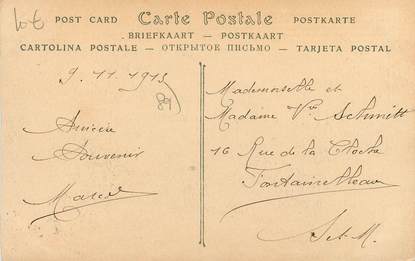 10€
POST CARD Carte Postale POSTKARTE
BRIEFKAART — POSTKAART
CARTOLINA POSTALE — ОТКРЫТОЕ ПИСЬМО — TARJETA POSTAL
9.11.1913
89
Sincère
Souvenir
Marcel
Mademoiselle et
Madame Vve Schmitt
16 Rue de la Cloche
Fontainebleau
S et M.